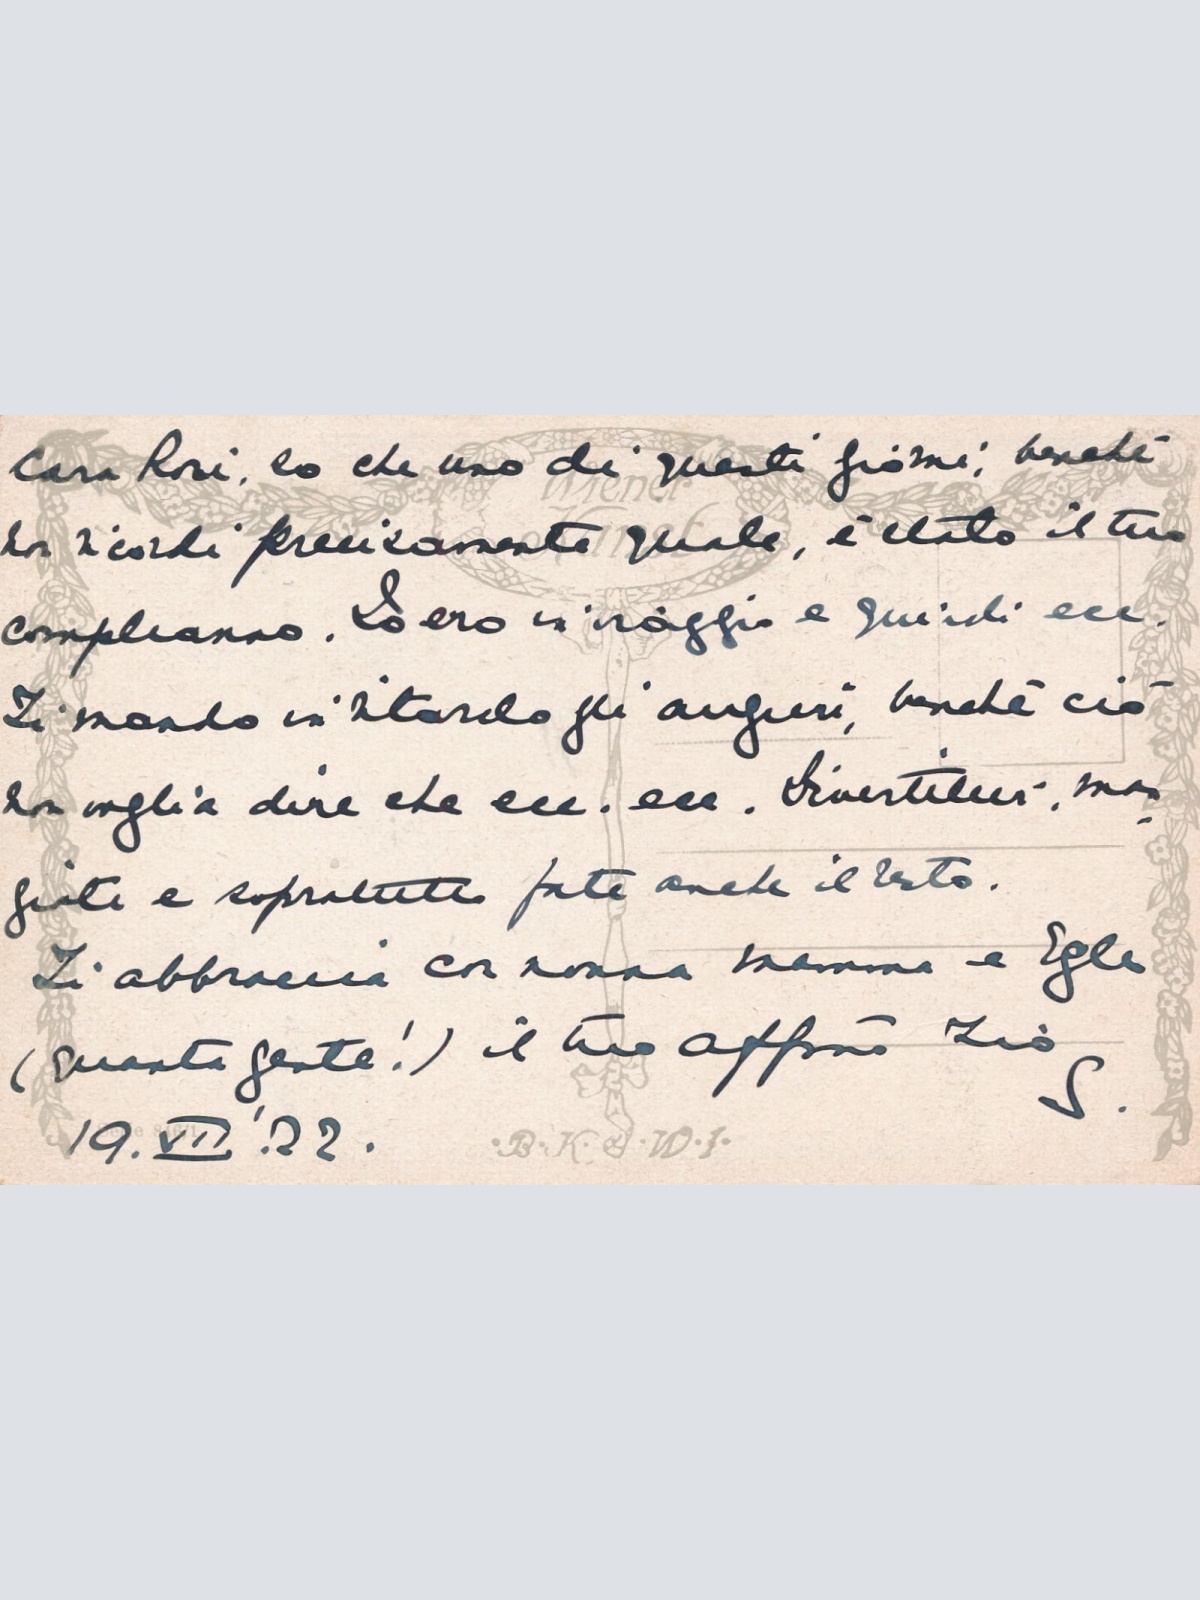 Cara Rosi, so che uno di questi giorni, benchè
non ricordi precisamente quale, è stato il tuo
compleanno. Io ero in viaggio e quindi ecc.
Ti mando in ritardo gli auguri, benchè ciò
non voglia dire che ecc. ecc. Divertitevi, man-
giate e sopratutto fate anche il resto.
Ti abbraccia con nonna mamma e Egle
(quanta gente!) il tuo affmo Zio
S.
19. VII '22.
Wiener
·B·K·W·I·